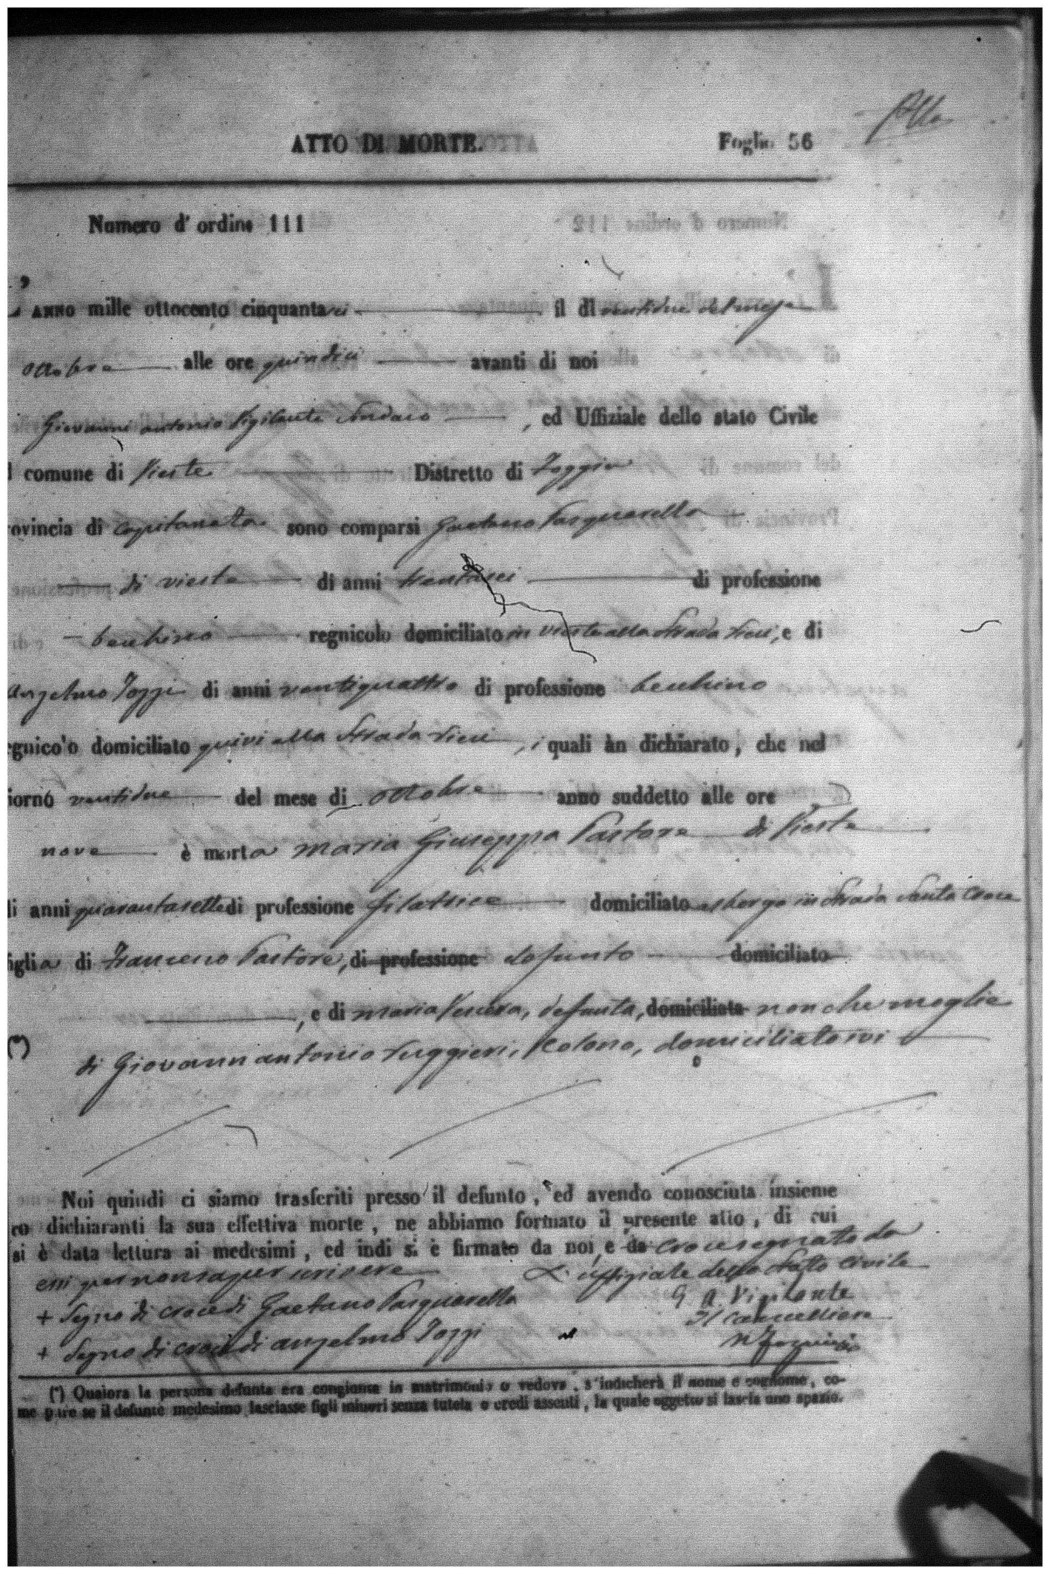 ATTO DI MORTE. Foglio 56
Numero d' ordine 111
ANNO mille ottocento cinquantasei il dì ventidue del mese
ottobre alle ore quindici avanti di noi
Giovanni antonio Vigilante Sindaco , ed Uffiziale dello stato Civile
l comune di Vieste Distretto di Foggia
rovincia di capitanata sono comparsi Gaetano Pasquarella
di vieste di anni trentasei di professione
becchino regnicolo domiciliato in vieste alla Strada Fieri, e di
Angelmo Tozzi di anni ventiquattro di professione becchino
egnicolo domiciliato quivi alla Strada Fieri , i quali àn dichiarato , che nel
iorno ventidue del mese di ottobre anno suddetto alle ore
nove è morta maria Giuseppa Pastore di Vieste
di anni quarantasette di professione filatrice domiciliato in Strada Santa Croce
iglia di Francesco Pastore, di professione defunto domiciliato
, e di maria , defunta, domiciliata nonche moglie
(*) di Giovann antonio Ruggieri, Colono, domiciliato ivi
Noi quindi ci siamo trasferiti presso il defunto , ed avendo conosciuta insieme
co dichiaranti la sua effettiva morte , ne abbiamo formato il presente atto , di cui
si è data lettura ai medesimi , ed indi si è firmato da noi, e da crocesegnato da
essi per non saper scrivere L' uffiziale dello Stato civile
+ Segno di croce di Gaetano Pasquarella G. A. Vigilante
+ Segno di croce di angelmo Tozzi Il Cancelliere
(*) Qualora la persona defunta era congiunta in matrimonio o vedova , s'indicherà il nome e cognome , co-
me pure se il defunto medesimo lasciasse figli minori senza tutela o eredi assenti , la quale oggetto si lascia uno spazio.